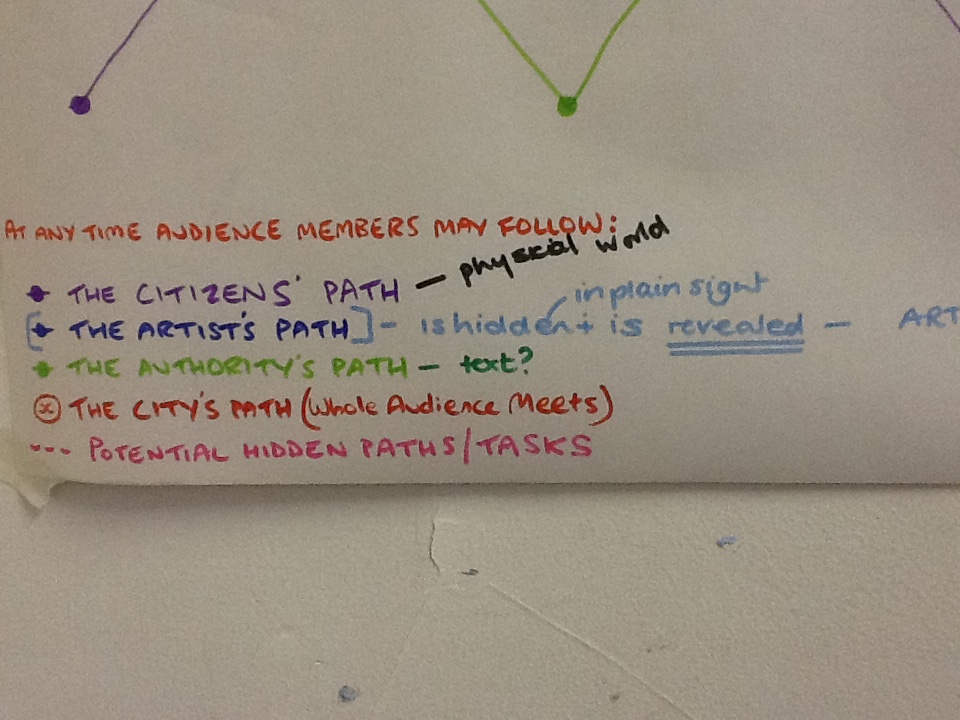 AT ANY TIME AUDIENCE MEMBERS MAY FOLLOW:
THE CITIZENS' PATH — physical world
in plain sight
[THE ARTIST'S PATH] - is hidden + is revealed — ART
THE AUTHORITY'S PATH — text?
THE CITY'S PATH (Whole Audience Meets)
--- POTENTIAL HIDDEN PATHS/TASKS